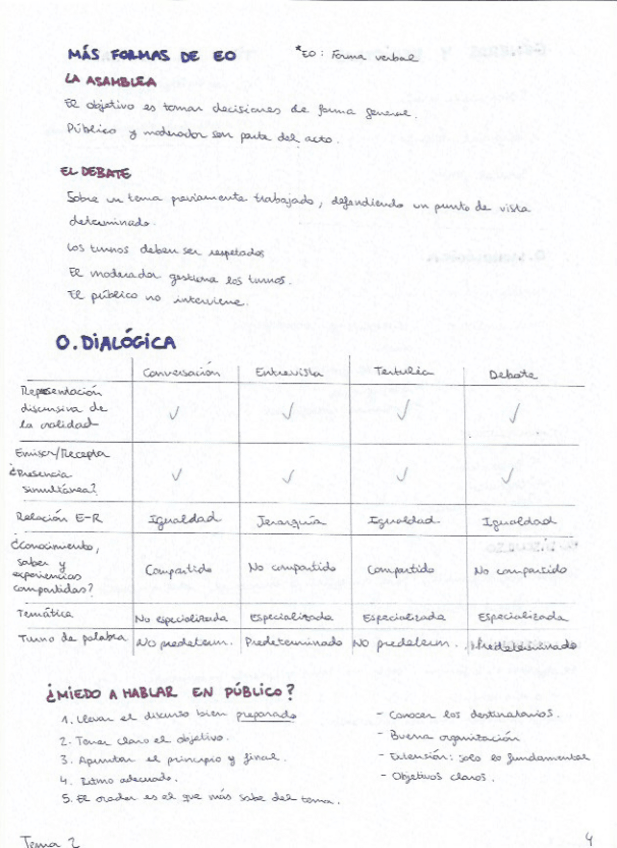 MÁS FORMAS DE EO *EO: Forma verbal
LA ASAMBLEA
El objetivo es tomar decisiones de forma general.
Público y moderador son parte del acto.
EL DEBATE
Sobre un tema previamente trabajado, defendiendo un punto de vista
determinado.
Los turnos deben ser respetados
El moderador gestiona los turnos.
El público no interviene.
O. DIALÓGICA
Conversación Entrevista Tertulia Debate
Representación
discursiva de
la oralidad ✓ ✓ ✓ ✓
Emisor/Receptor
¿Presencia
simultánea? ✓ ✓ ✓ ✓
Relación E-R Igualdad Jerarquía Igualdad. Igualdad
¿Conocimiento,
saber y
experiencias
compartidas? Compartido No compartido Compartido No compartido
Temática No especializada Especializada Especializada Especializada
Turno de palabra No predeterm. Predeterminado No predeterm. Predeterminado
¿MIEDO A HABLAR EN PÚBLICO?
1. Llevar el discurso bien preparado
2. Tener claro el objetivo.
3. Apuntar el principio y final.
4. Ritmo adecuado.
5. El orador es el que más sabe del tema.
- Conocer los destinatarios.
- Buena organización
- Extensión: solo lo fundamental
- Objetivos claros.
Tema 2 4